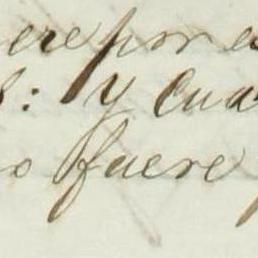 ere por e
s: Y Cua
o fuere